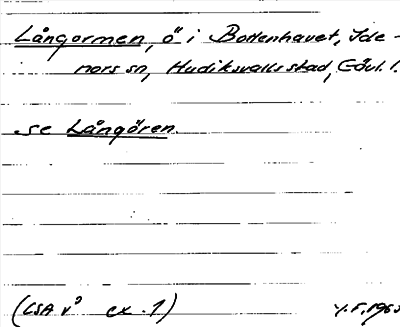 Långormen, ö i Bottenhavet, Ide-
nors sn, Hudiksvalls stad, Gävl. l.
se Långören.
(LSA v° ex. 1)
Y.F. 1965